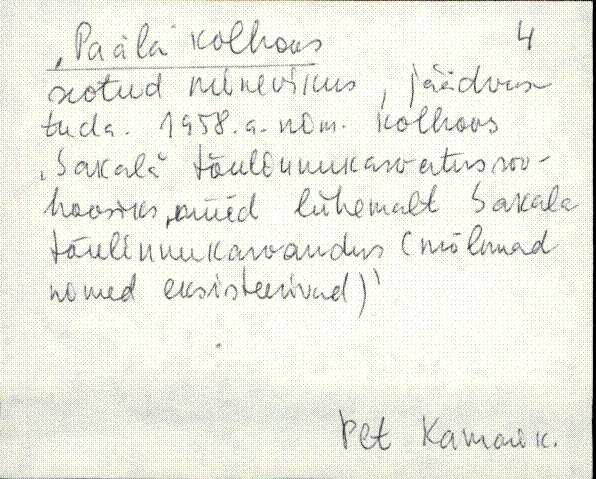 „Päälä" kolhoos 4
seotud minevikus, jäädvus-
tuda. 1958.a. nom. kolhoos
„Sakala" tõulinnukasvatussov-
hoosiks, nüüd lühemalt Sakala
tõulinnukasvandus (mõlemad
nomed eksisteerivad)"
Pet Kamarik.